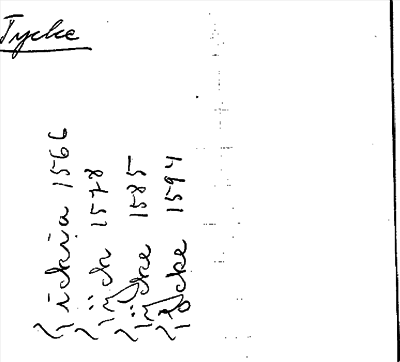 Tycke
Tickia 1566
Tijck 1578
Tijcke 1585
Tÿcke 1594